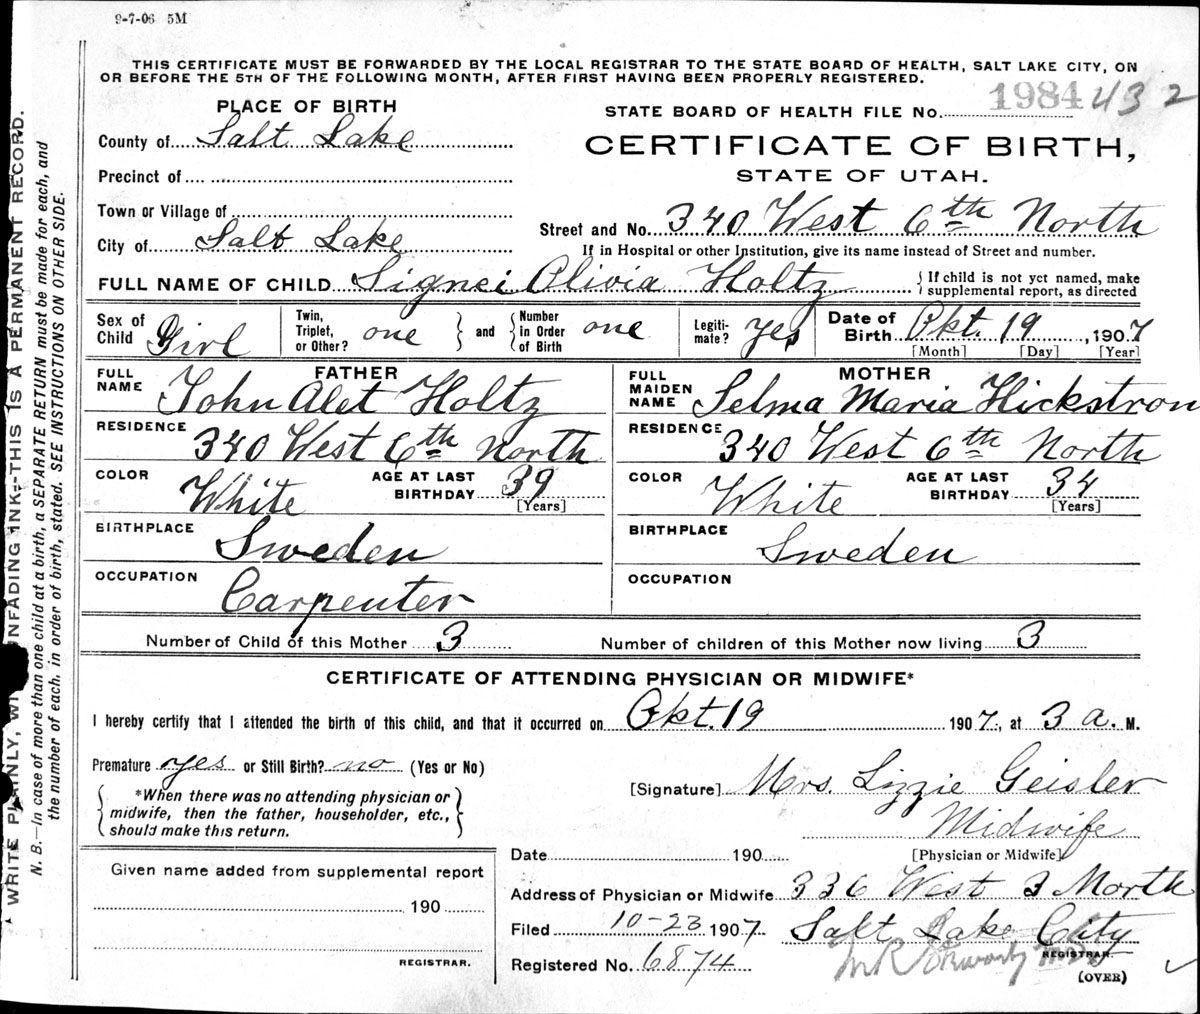 9-7-06 5M
THIS CERTIFICATE MUST BE FORWARDED BY THE LOCAL REGISTRAR TO THE STATE BOARD OF HEALTH, SALT LAKE CITY, ON
OR BEFORE THE 5TH OF THE FOLLOWING MONTH, AFTER FIRST HAVING BEEN PROPERLY REGISTERED.
PLACE OF BIRTH
STATE BOARD OF HEALTH FILE No. 1984 432
County of Salt Lake
CERTIFICATE OF BIRTH,
STATE OF UTAH.
Precinct of
Town or Village of
Street and No. 340 West 6th North
City of Salt Lake
If in Hospital or other Institution, give its name instead of Street and number.
FULL NAME OF CHILD Signei Olivia Holtz
{ If child is not yet named, make
supplemental report, as directed
Sex of Child Girl
Twin, Triplet, or Other? one } and { Number in Order of Birth one
Legiti-mate? yes
Date of Birth Okt. 19, 1907
[Month] [Day] [Year]
FATHER
FULL NAME John Alet Holtz
RESIDENCE 340 West 6th North
COLOR White
AGE AT LAST BIRTHDAY 39
[Years]
BIRTHPLACE Sweden
OCCUPATION Carpenter
MOTHER
FULL MAIDEN NAME Selma Maria Hickstron
RESIDENCE 340 West 6th North
COLOR White
AGE AT LAST BIRTHDAY 34
[Years]
BIRTHPLACE Sweden
OCCUPATION
Number of Child of this Mother 3 Number of children of this Mother now living 3
CERTIFICATE OF ATTENDING PHYSICIAN OR MIDWIFE*
I hereby certify that I attended the birth of this child, and that it occurred on Okt. 19 1907, at 3 a. M.
Premature yes or Still Birth? no (Yes or No)
{ *When there was no attending physician or
midwife, then the father, householder, etc.,
should make this return. }
[Signature] Mrs. Lizzie Geisler
Midwife
[Physician or Midwife]
Date 190
Address of Physician or Midwife 336 West 3 North
Salt Lake City
Filed 10-23 1907
REGISTRAR
Registered No. 6874
(OVER)
Given name added from supplemental report
190
REGISTRAR.
WRITE PLAINLY, WI UNFADING INK--THIS IS A PERMANENT RECORD.
N. B.—In case of more than one child at a birth, a SEPARATE RETURN must be made for each, and
the number of each, in order of birth, stated. SEE INSTRUCTIONS ON OTHER SIDE.